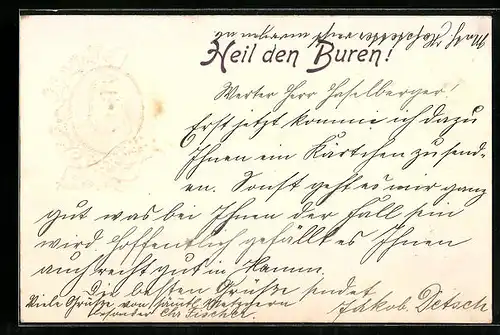 Heil den Buren!
Werter Herr Haselberger!
Erst jetzt komme ich dazu
Ihnen ein Kärtchen zu send-
en. Sonst geht es mir ganz
gut was bei Ihnen der Fall sein
wird hoffentlich gefällt es Ihnen
auch recht gut in Hamm.
Die besten Grüße sendet
Jakob Detsch
Viele Grüße von sämtl. Metzgern
Chr. Fischer.